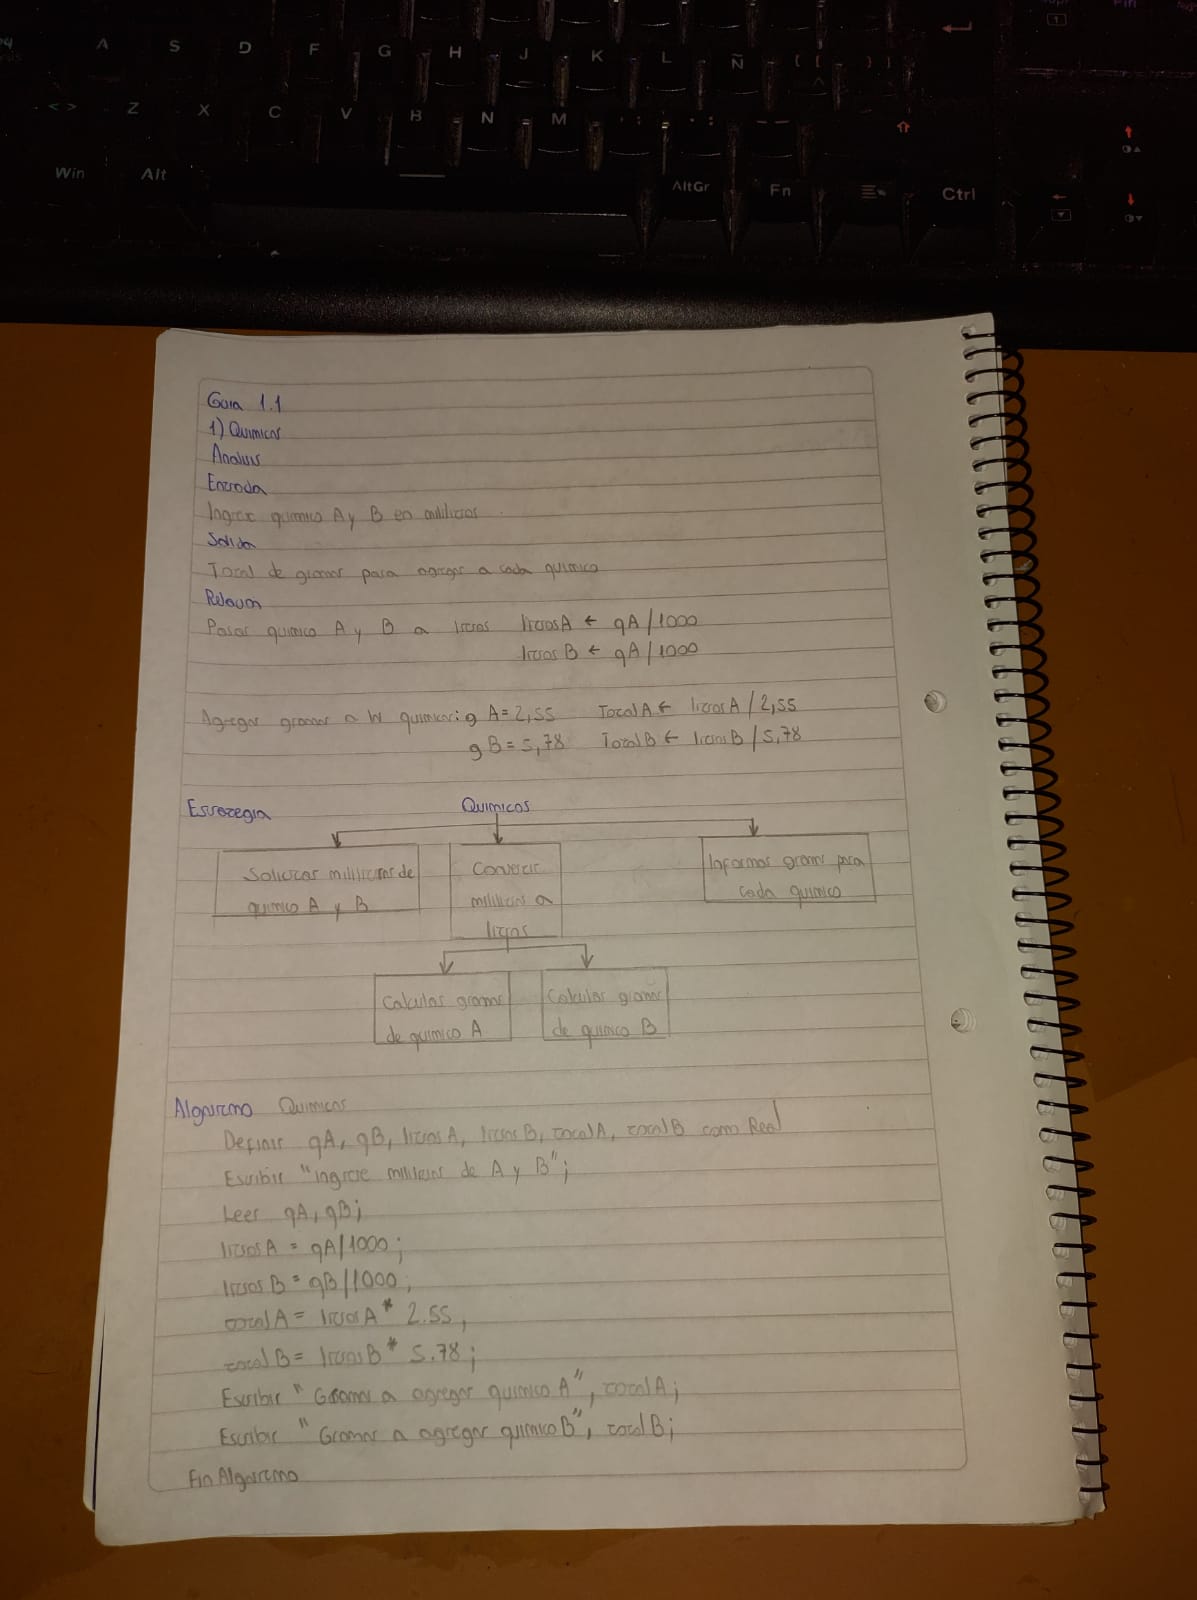 A S D F G H J K L Ñ
< > Z X C V B N M
Win Alt AltGr Fn Ctrl
Guia 1.1
1) Quimicos
Analisis
Entrada
Ingrese quimico A y B en mililitros
Salida
Total de gramos para agregar a cada quimico
Relacion
Pasar quimico A y B a litros litrosA ← qA/1000
litrosB ← qA/1000
Agregar gramos a los quimicos: g A=2,55 TotalA ← litrosA/2,55
g B=5,78 TotalB ← litrosB/5,78
Estrategia Quimicos
Solicitar mililitros de
quimico A y B
Convertir
mililitros a
litros
Informar gramos para
cada quimico
Calcular gramos
de quimico A
Calcular gramos
de quimico B
Algoritmo Quimicos
Definir qA, qB, litrosA, litrosB, totalA, totalB como Real
Escribir "ingrese mililitros de A y B";
Leer qA, qB;
litrosA = qA/1000;
litrosB = qB/1000;
totalA = litrosA * 2.55;
totalB = litrosB * 5.78;
Escribir "Gramos a agregar quimico A", totalA;
Escribir "Gramos a agregar quimico B", totalB;
Fin Algoritmo